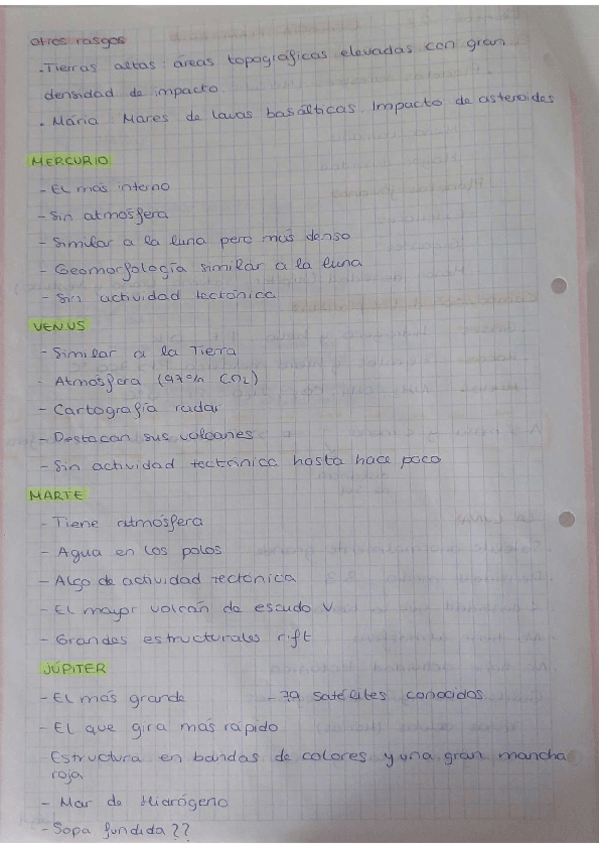 otros rasgos
. Tierras altas: áreas topográficas elevadas con gran
densidad de impacto.
. Mária: Mares de lavas basálticas. Impacto de asteroides
MERCURIO
- El más interno
- Sin atmósfera
- Similar a la luna pero más denso
- Geomorfología similar a la luna
- Sin actividad tectónica
VENUS
- Similar a la Tierra
- Atmósfera (97% CO2)
- Cartografía radar
- Destacan sus volcanes
- Sin actividad tectónica hasta hace poco
MARTE
- Tiene atmósfera
- Agua en los polos
- Algo de actividad tectónica
- El mayor volcán de escudo V
- Grandes estructurales rift
JÚPITER
- El más grande - 79 satélites conocidos
- El que gira más rápido
- Estructura en bandas de colores y una gran mancha
roja
- Mar de Hidrógeno
- Sopa fundida??